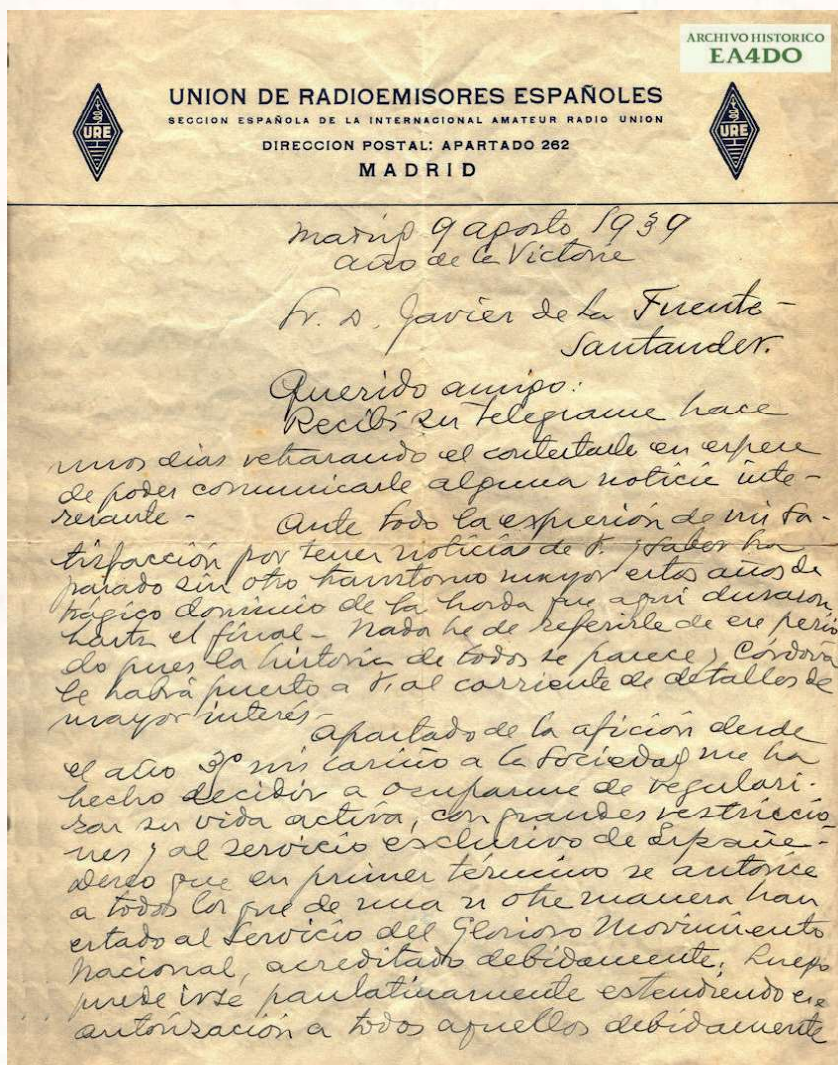 ARCHIVO HISTORICO
EA4DO
URE
UNION DE RADIOEMISORES ESPAÑOLES
SECCION ESPAÑOLA DE LA INTERNACIONAL AMATEUR RADIO UNION
DIRECCION POSTAL: APARTADO 262
MADRID
URE
Madrid 9 agosto 1939
Año de la Victoria
Sr. D. Javier de la Fuente-
Santander.
Querido amigo:
Recibí su telegrama hace
unos días retrasando el contestarle en espera
de poder comunicarle alguna noticia inte-
resante-
Ante todo la expresión de mi sa-
tisfacción por tener noticias de V. y saber ha
pasado sin otro transtorno mayor estos años de
trágico dominio de la horda que aquí duraron
hasta el final- Nada he de referirle de ese perio
do pues la historia de todos se parece y Córdova
le habrá puesto a V. al corriente de detalles de
mayor interés-
Apartado de la afición desde
el año mi cariño a la Sociedad me ha
hecho decidir a ocuparme de regulari-
zar su vida activa, con grandes restriccio
nes y al servicio exclusivo de España-
Deseo que en primer término se autorice
a todos los que de una u otra manera han
estado al Servicio del Glorioso Movimiento
Nacional, acreditado debidamente; Luego
puede irse paulatinamente estendiendo esa
autorización a todos aquellos debidamente